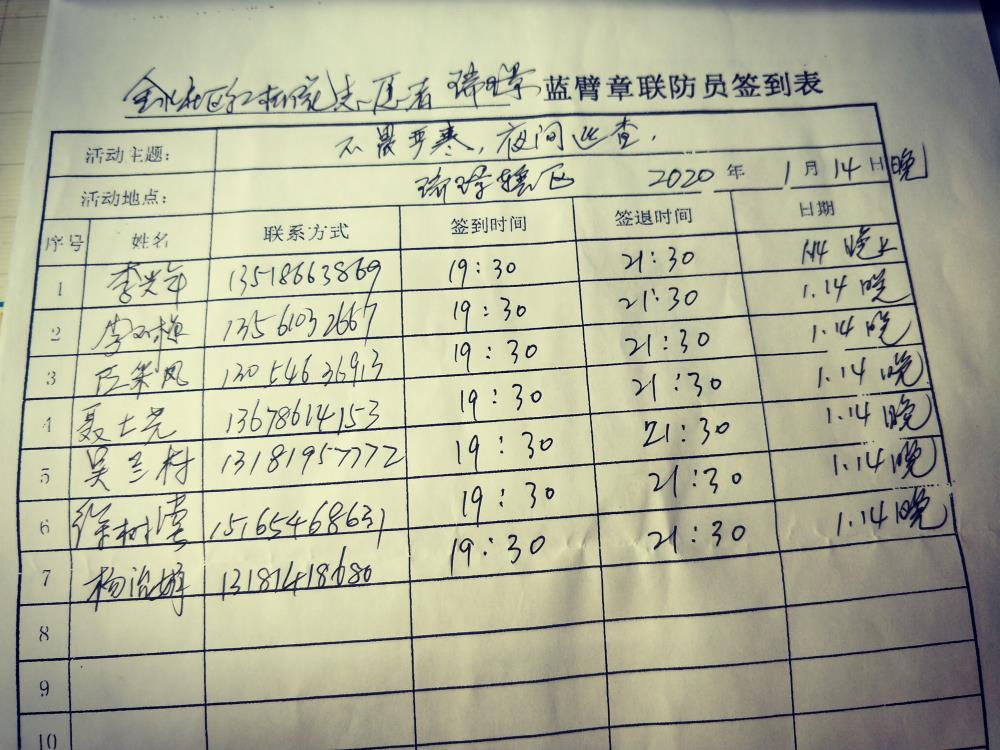 志愿者 瑞璟 蓝臂章联防员签到表
活动主题： 不畏严寒，夜间巡查．
活动地点： 瑞璟辖区 2020 年 1 月 14 日 晚
序号 姓名 联系方式 签到时间 签退时间 日期
1 李兴年 13518663869 19:30 21:30 1.14 晚上
2 13561032667 19:30 21:30 1.14 晚
3 13054636913 19:30 21:30 1.14 晚
4 聂士亮 13678614153 19:30 21:30 1.14 晚
5 吴兰村 13181957772 19:30 21:30 1.14 晚
6 徐树 15165468631 19:30 21:30 1.14 晚
7 杨治 13181418680 19:30 21:30 1.14 晚
8
9
10